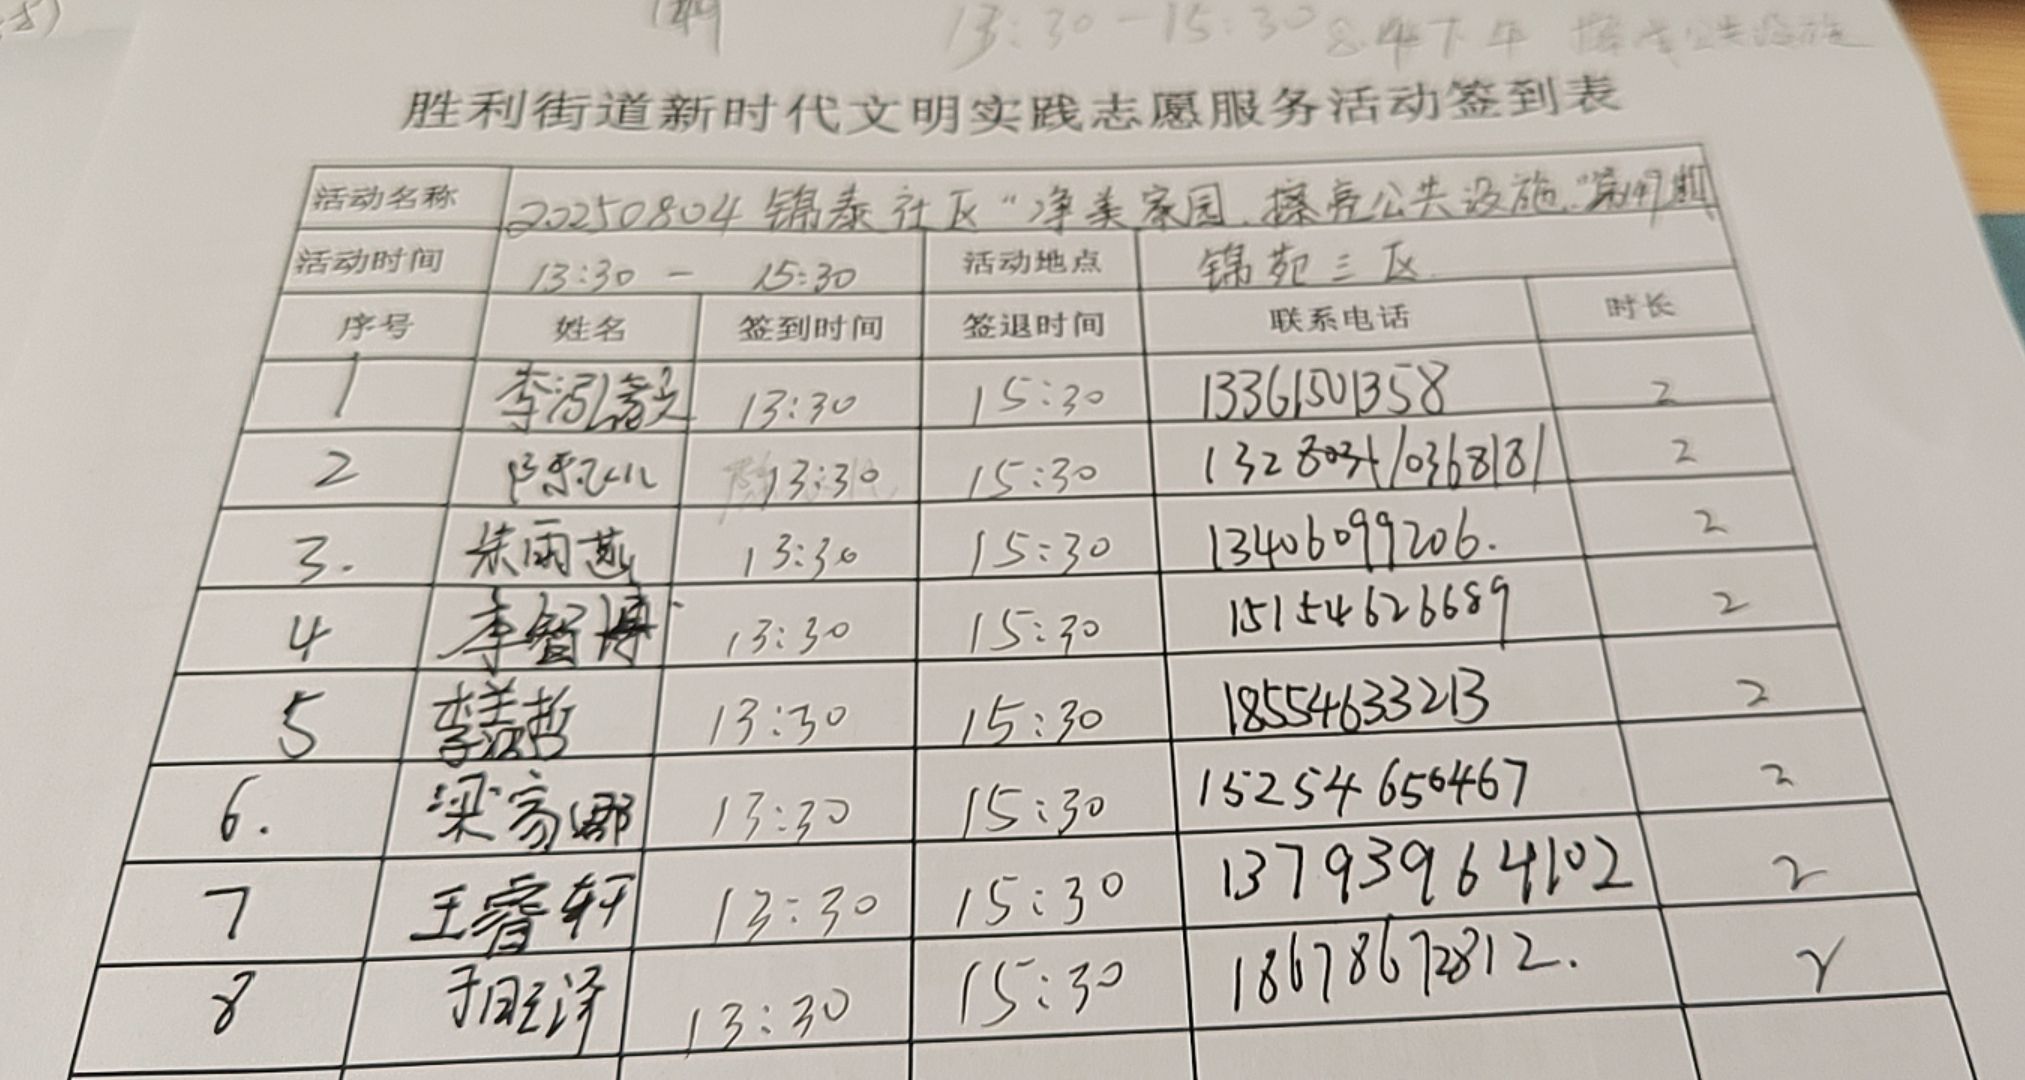 13:30-15:30 8.4下午 擦亮公共设施
胜利街道新时代文明实践志愿服务活动签到表
活动名称 20250804 锦泰社区“净美家园.擦亮公共设施”第149期
活动时间 13:30 - 15:30 活动地点 锦苑三区
序号 姓名 签到时间 签退时间 联系电话 时长
1 李泓毅 13:30 15:30 13361501358 2
2 陈 13:30 15:30 2
3. 朱雨 13:30 15:30 13406099206. 2
4 李智博 13:30 15:30 15154626689 2
5 李 哲 13:30 15:30 18554633213 2
6. 梁家娜 13:30 15:30 15254650467 2
7 王睿轩 13:30 15:30 13793964102 2
8 于 泽 13:30 15:30 18678672812. 2